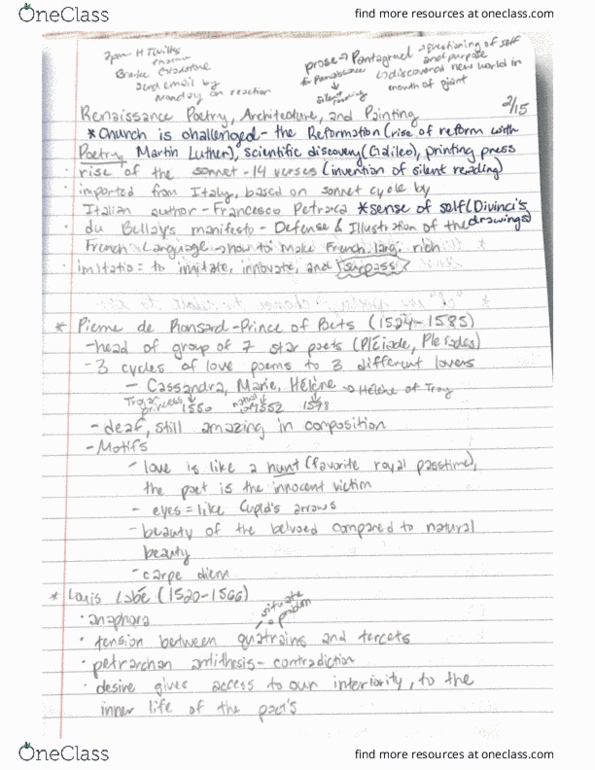 OneClass
find more resources at oneclass.com
prose → Pantagruel → questioning of self and purpose
* Renaissance ↳ discovered new world in mouth of giant
↓
silent reading
send email by
Monday on reaction
2/15
Renaissance Poetry, Architecture, and Painting
*Church is challenged - the Reformation (rise of reform with
Poetry Martin Luther), scientific discovery (Galileo), printing press
· rise of the sonnet - 14 verses (invention of silent reading)
· imported from Italy, based on sonnet cycle by
Italian author - Francesco Petrarca *sense of self (Divinci's drawings)
· du Bellay's manifesto - Defense & Illustration of the
French Language → how to make French lang. rich
· imitatio = to imitate, innovate, and surpass
* Pierre de Ronsard - Prince of Poets (1524-1585)
- head of group of 7 star poets (Pléiade, Pleiades)
- 3 cycles of love poems to 3 different lovers
- Cassandra, Marie, Hélène → Hélène of Troy
Trojan princess 1550 1552 1578
- deaf, still amazing in composition
- Motifs
- love is like a hunt (favorite royal passtime),
the poet is the innocent victim
- eyes = like Cupid's arrows
- beauty of the beloved compared to natural
beauty
- carpe diem
* Louis Labé (1520-1566)
· anaphora
situate a problem
· tension between quatrains and tercets
· petrarchan antithesis - contradiction
· desire gives access to our interiority, to the
inner life of the poet's
OneClass
find more resources at oneclass.com